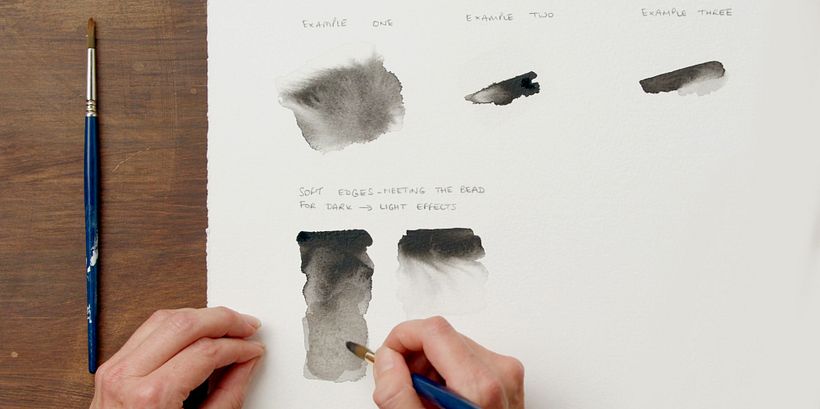 EXAMPLE ONE
EXAMPLE TWO
EXAMPLE THREE
SOFT EDGES - MEETING THE BEAD
FOR DARK → LIGHT EFFECTS